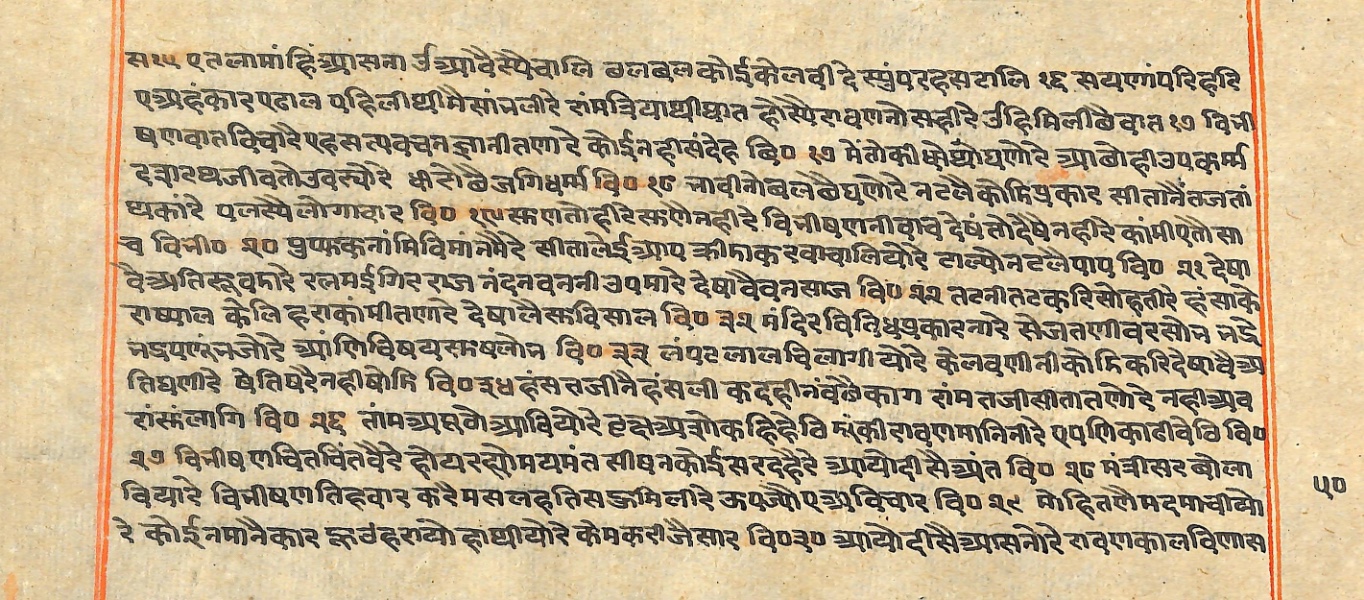 स१५ एतलामांहिं आसना ई आवैस्पेवालि बलबल कोई केलवी दे स्युंपरहसटालि १६ सयणांपरिहरि
एअहंकार एढाल पहिलीथीमैसांभलीरे रांमत्रियाथीघात होस्पैरावणनोसहीरे ईहिमिलीछैवात १७ विभी
षणवातविचारैएहसत्यवचनज्ञानीतणारे कोईनहीसंदेह वि० १७ मेंतोकीधोद्योघणोरे आछोहीउपकर्म्म
दशरथजीवतोउवस्योरे धीठोछैजगिधर्म्म वि०१८ भावीनोबलछैघणोरे नटलैकोडिप्रकार सीतानैंतजतां
थकांरे पलस्यैलोगाचार वि० १९ सुणतोहीरेसुणैनहीरे विभीषणनीवाच देषंतोदेषैनहीरे कांमीएतौसा
च विभी० २० पुष्फकनांमिविमांनमैरे सीतालेईआप क्रीडाकरवाचालियोरे टाल्योनटलैपाप वि० २१ देषा
वैअतिरूवडारे रतनमईगिरराज नंदनवननीउपमारे देषावैवनसाज वि० २२ तटनीतटकरिसोहतीरे हंसाके
राष्याल केलिहराकांमीतणारे देषालैसुविसाल वि० २२ मंदिरविविधप्रकारनारे सेजतणीवरसोभ भडे
भडपणुंभजोरे आंणिविषयसुषलोभ वि० २३ लंपटलालचिलागीयोरे केलवणीनीकोडि करिदेषावैअ
तिघणीरे षेतिपरैनहीषोडि वि०२४ हंसतजीनैहंसली कदहीनवंछैकाग रांमतजीसीतातणोरे नहीअव
रांसुंलागि वि० २६ तांमअपूठोआवियोरे वृक्षअशोकहिहेवि मुंकीरावणमानिनीरे एपणिकाढीवेवि वि०
२७ विभीषणचितचिंतवैरे होयरह्योमयमंत सीषनकोईसरदहैरे आयोदीसैअंत वि० २८ मंत्रीसरबोला
वियारे विभीषणतिहवार करैमसलहतिसहुमिलीरे ऊपज्योएअविचार वि० २९ मोहितणैमदमाचीयो
रे कोईनमानैकार हुवंहरायोहाथीयोरे केमकरीजैसार वि०३० आयोदीसैआसनोरे रावणकालविणास
५०